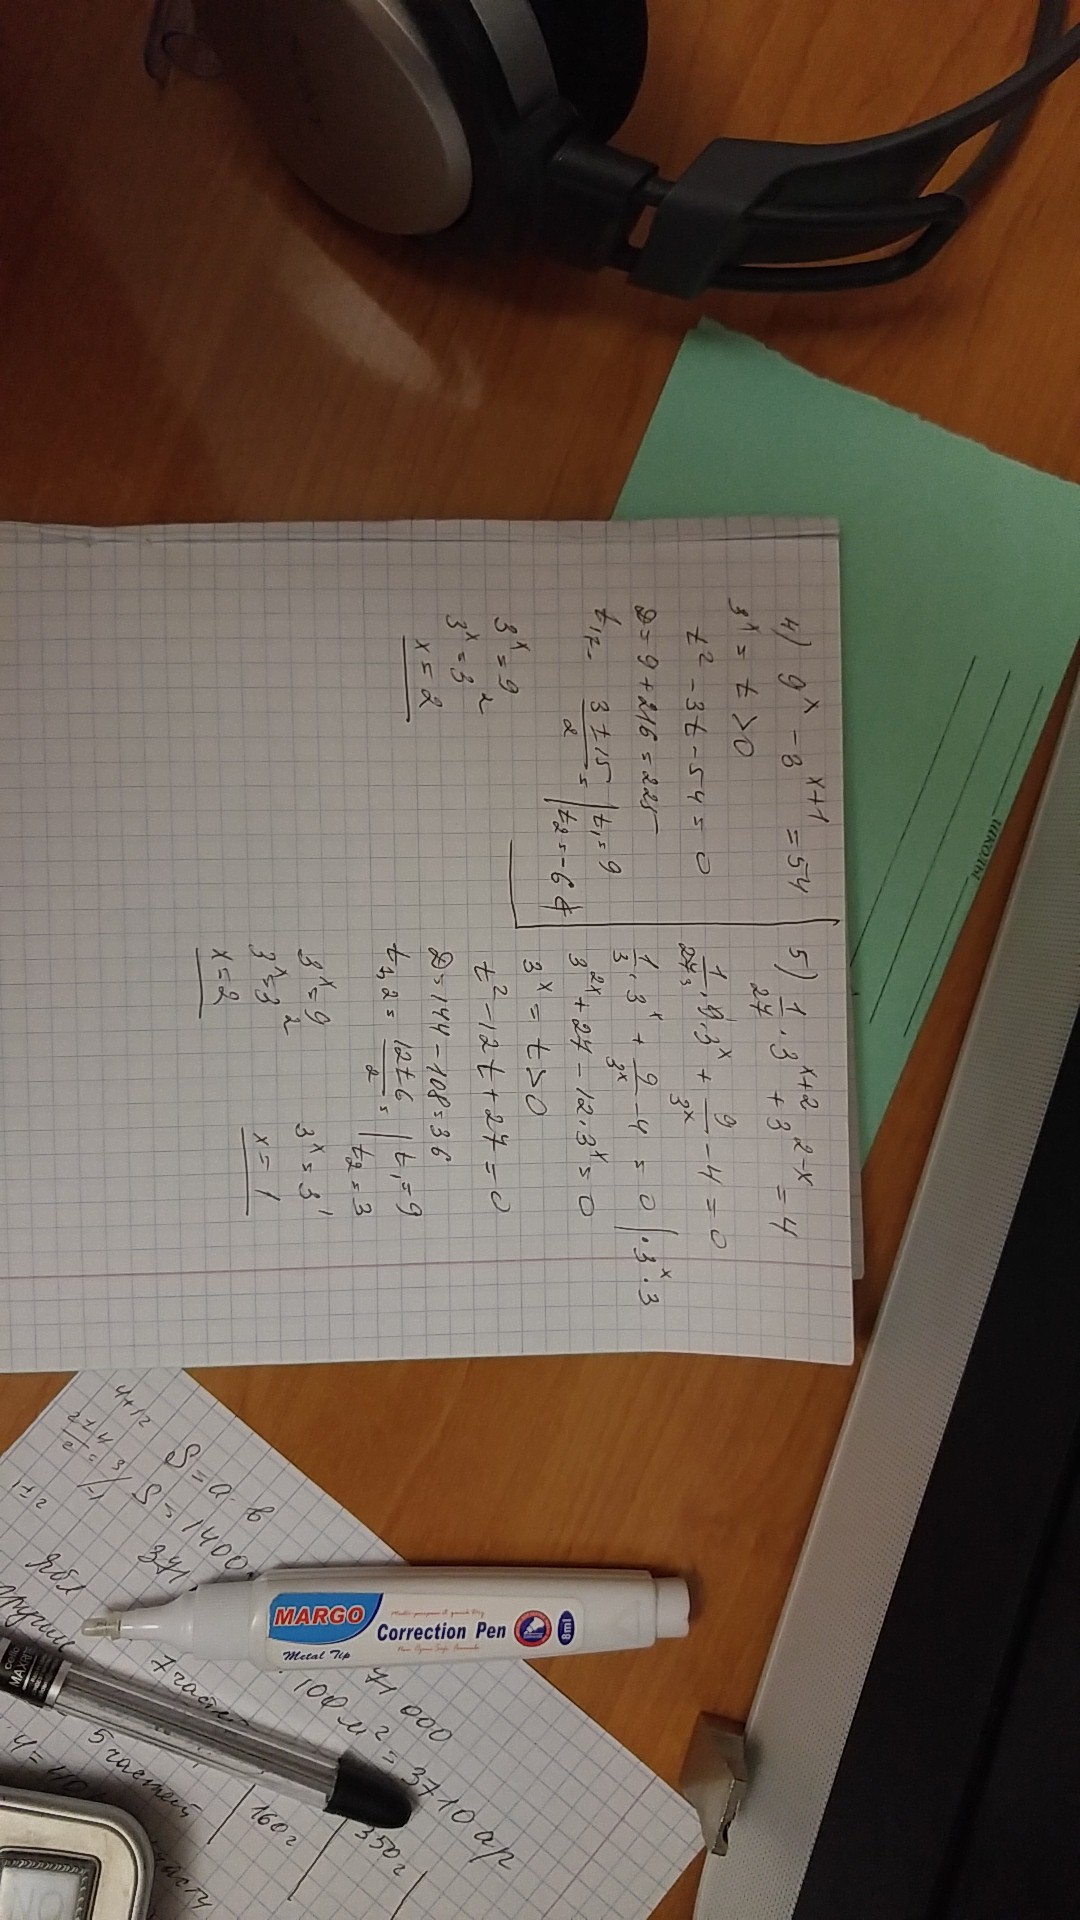 4) 9ˣ - 8ˣ⁺¹ = 54
3ˣ = t > 0
t² - 3t - 54 = 0
D = 9 + 216 = 225
t₁,₂ = (3 ± 15)/2 = | t₁ = 9
t₂ = -6 ∉
3ˣ = 9
3ˣ = 3²
x = 2
5) 1/27 · 3ˣ⁺² + 3²⁻ˣ = 4
1/27 · 9 · 3ˣ + 9/3ˣ - 4 = 0
1/3 · 3ˣ + 9/3ˣ - 4 = 0 | · 3ˣ · 3
3²ˣ + 27 - 12 · 3ˣ = 0
3ˣ = t > 0
t² - 12t + 27 = 0
D = 144 - 108 = 36
t₁,₂ = (12 ± 6)/2 = | t₁ = 9
t₂ = 3
3ˣ = 9
3ˣ = 3²
x = 2
3ˣ = 3¹
x = 1
школы
S = a · b
S = 1400
371
71 000
100 м² = 3710 ар
5 частей
160 г
350 г
MARGO
Correction Pen
Metal Tip
8ml
cello